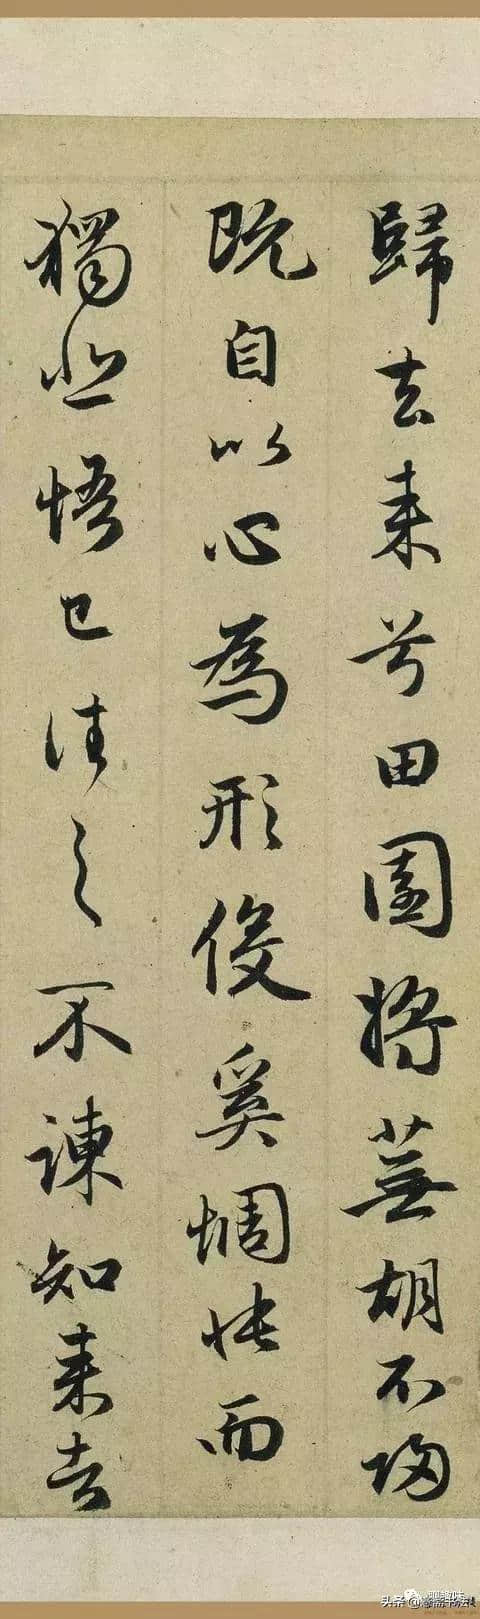 歸去来兮田園將蕪胡不歸
既自以心為形役奚惆悵而
獨悲悟已往之不諫知来者
头条